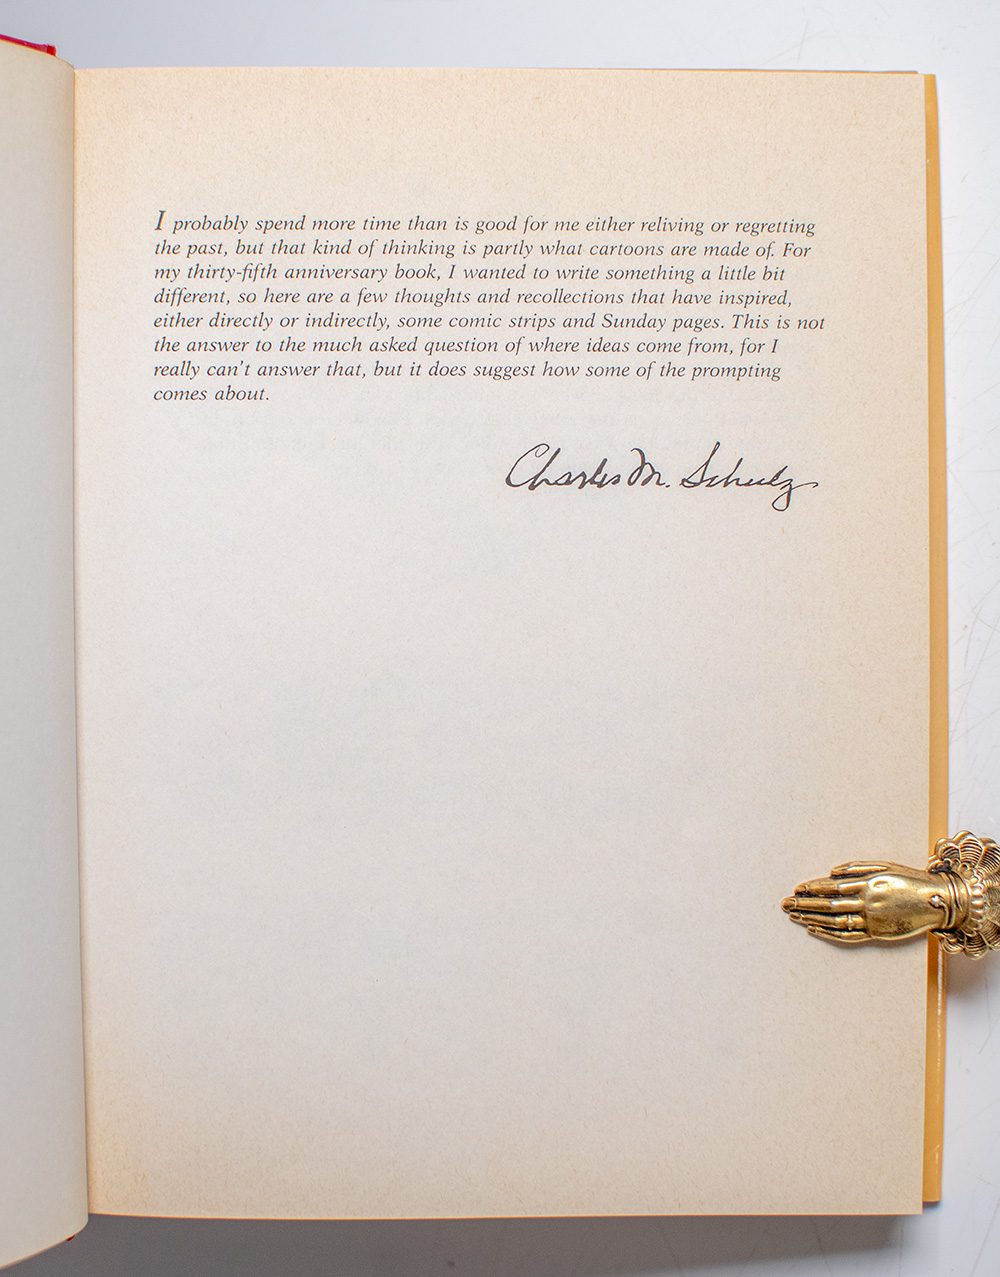 I probably spend more time than is good for me either reliving or regretting
the past, but that kind of thinking is partly what cartoons are made of. For
my thirty-fifth anniversary book, I wanted to write something a little bit
different, so here are a few thoughts and recollections that have inspired,
either directly or indirectly, some comic strips and Sunday pages. This is not
the answer to the much asked question of where ideas come from, for I
really can't answer that, but it does suggest how some of the prompting
comes about.
Charles M. Schulz